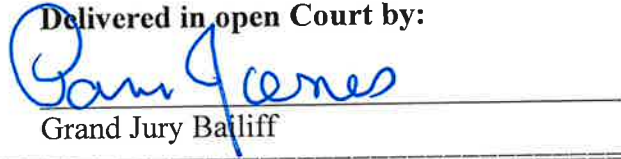 Delivered in open Court by:
Pam Jones
Grand Jury Bailiff